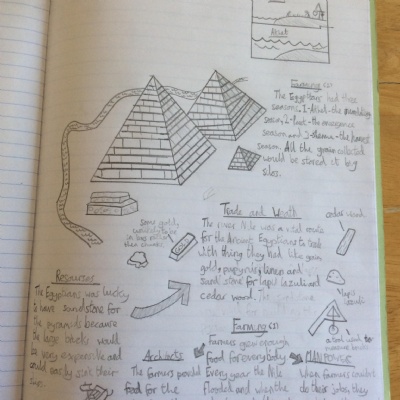 Akhet
Farming (2)
The Egyptians had three
seasons. 1-Akhet - the
season, 2-Peret - the emergence
season and 3-Shemu - the harvest
season. All the grain collected
would be stored in big
silos.
Trade and Wealth
The river Nile was a vital route
for the Ancient Egyptians to trade
with thing they had like grain
gold, papyrus, linen and
sandstone for lapis lazuli and
cedar wood.
cedar wood
lapis lazuli
a tool used to
measure bricks
some gold
Resources
The Egyptians was lucky
to have sandstone for
the pyramids because
the large bricks would
be very expensive and
could easily sink their
ship.
Farming (1)
Farmers grew enough
food for everybody
Every year the Nile
flooded and when the
Architects
The farmers provided
food for the
MANPOWER
When farmers couldn't
do their jobs, they